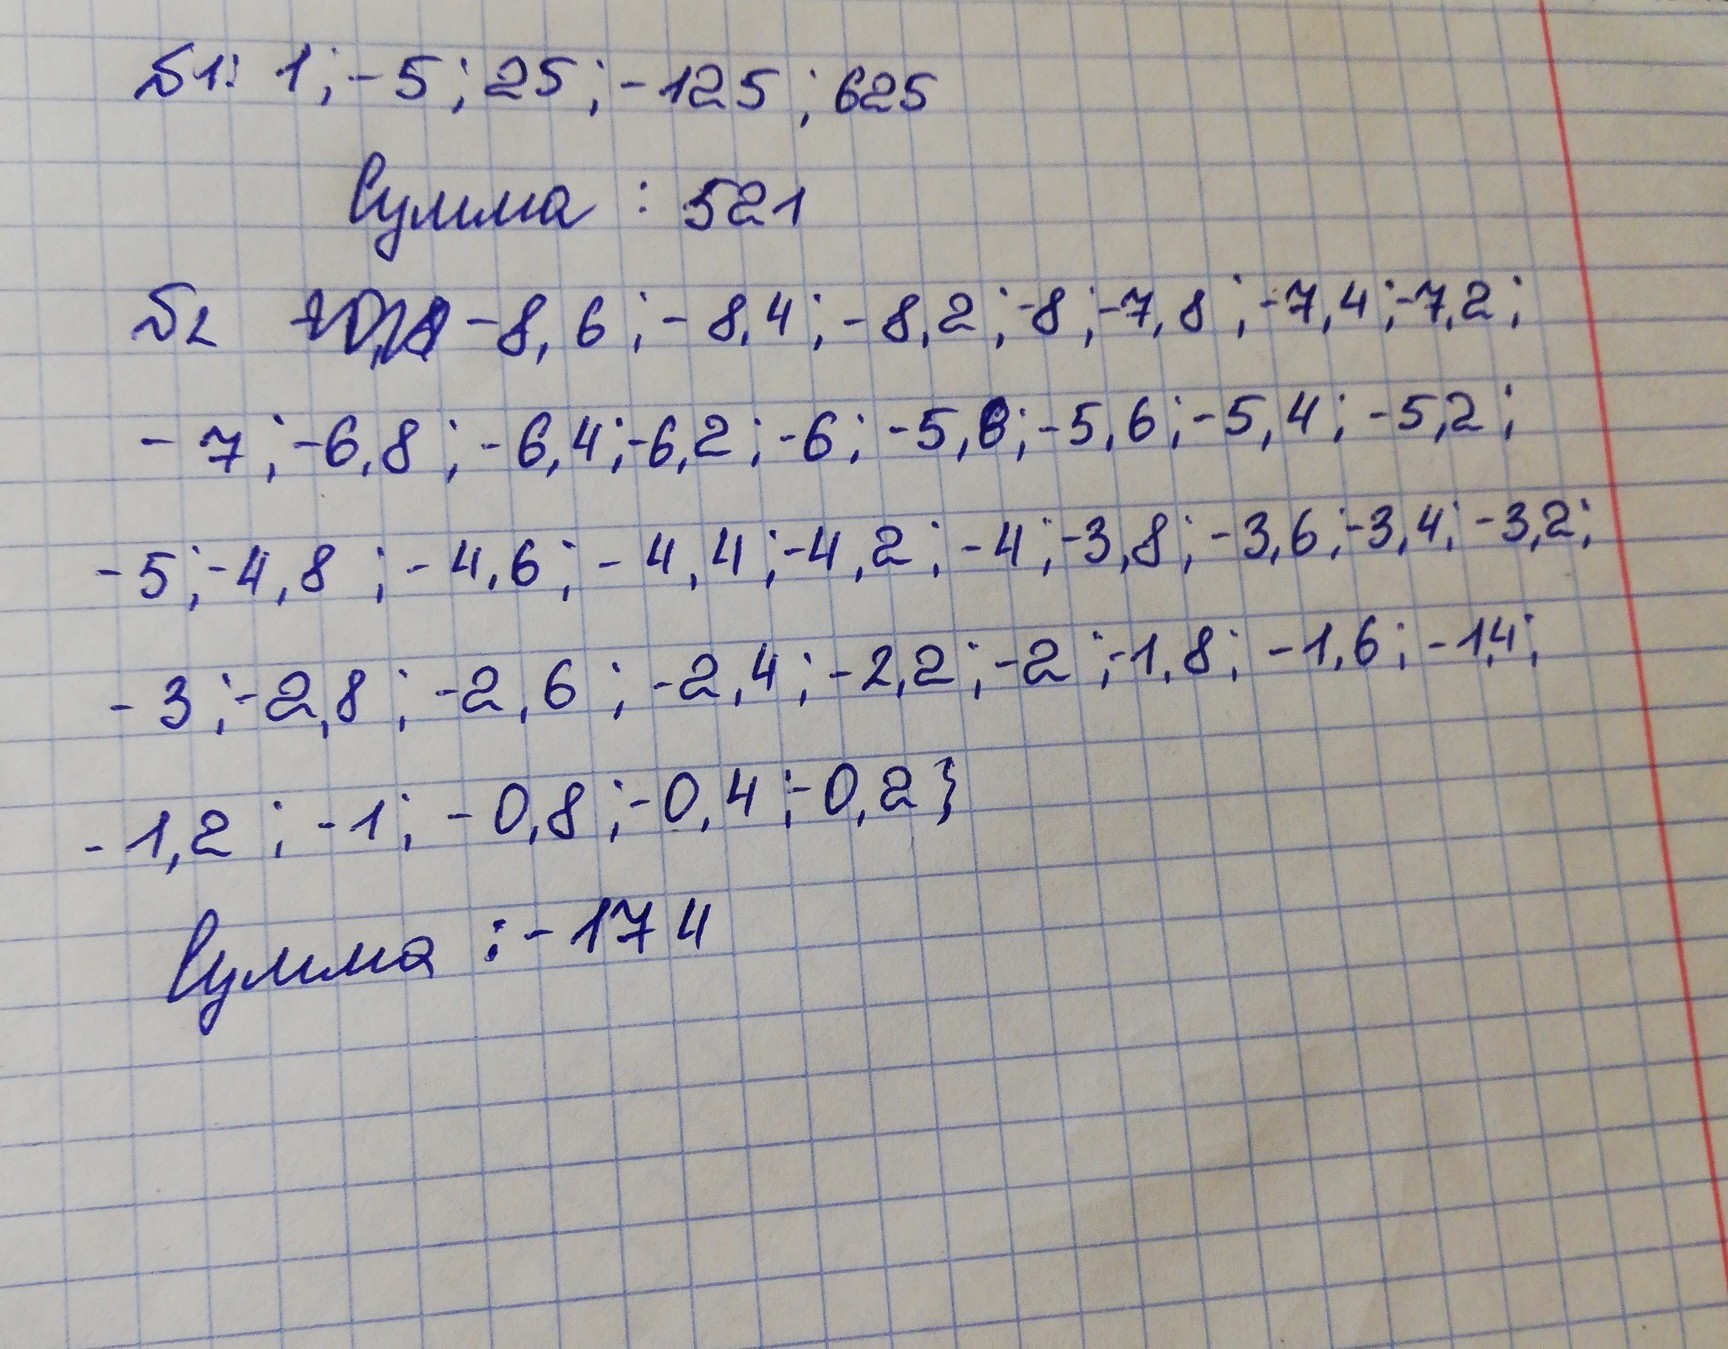 №1: 1; -5; 25; -125; 625
Сумма: 521
№2 -8,6; -8,4; -8,2; -8; -7,8; -7,4; -7,2;
-7; -6,8; -6,4; -6,2; -6; -5,8; -5,6; -5,4; -5,2;
-5; -4,8; -4,6; -4,4; -4,2; -4; -3,8; -3,6; -3,4; -3,2;
-3; -2,8; -2,6; -2,4; -2,2; -2; -1,8; -1,6; -1,4;
-1,2; -1; -0,8; -0,4; -0,2}
Сумма: -174